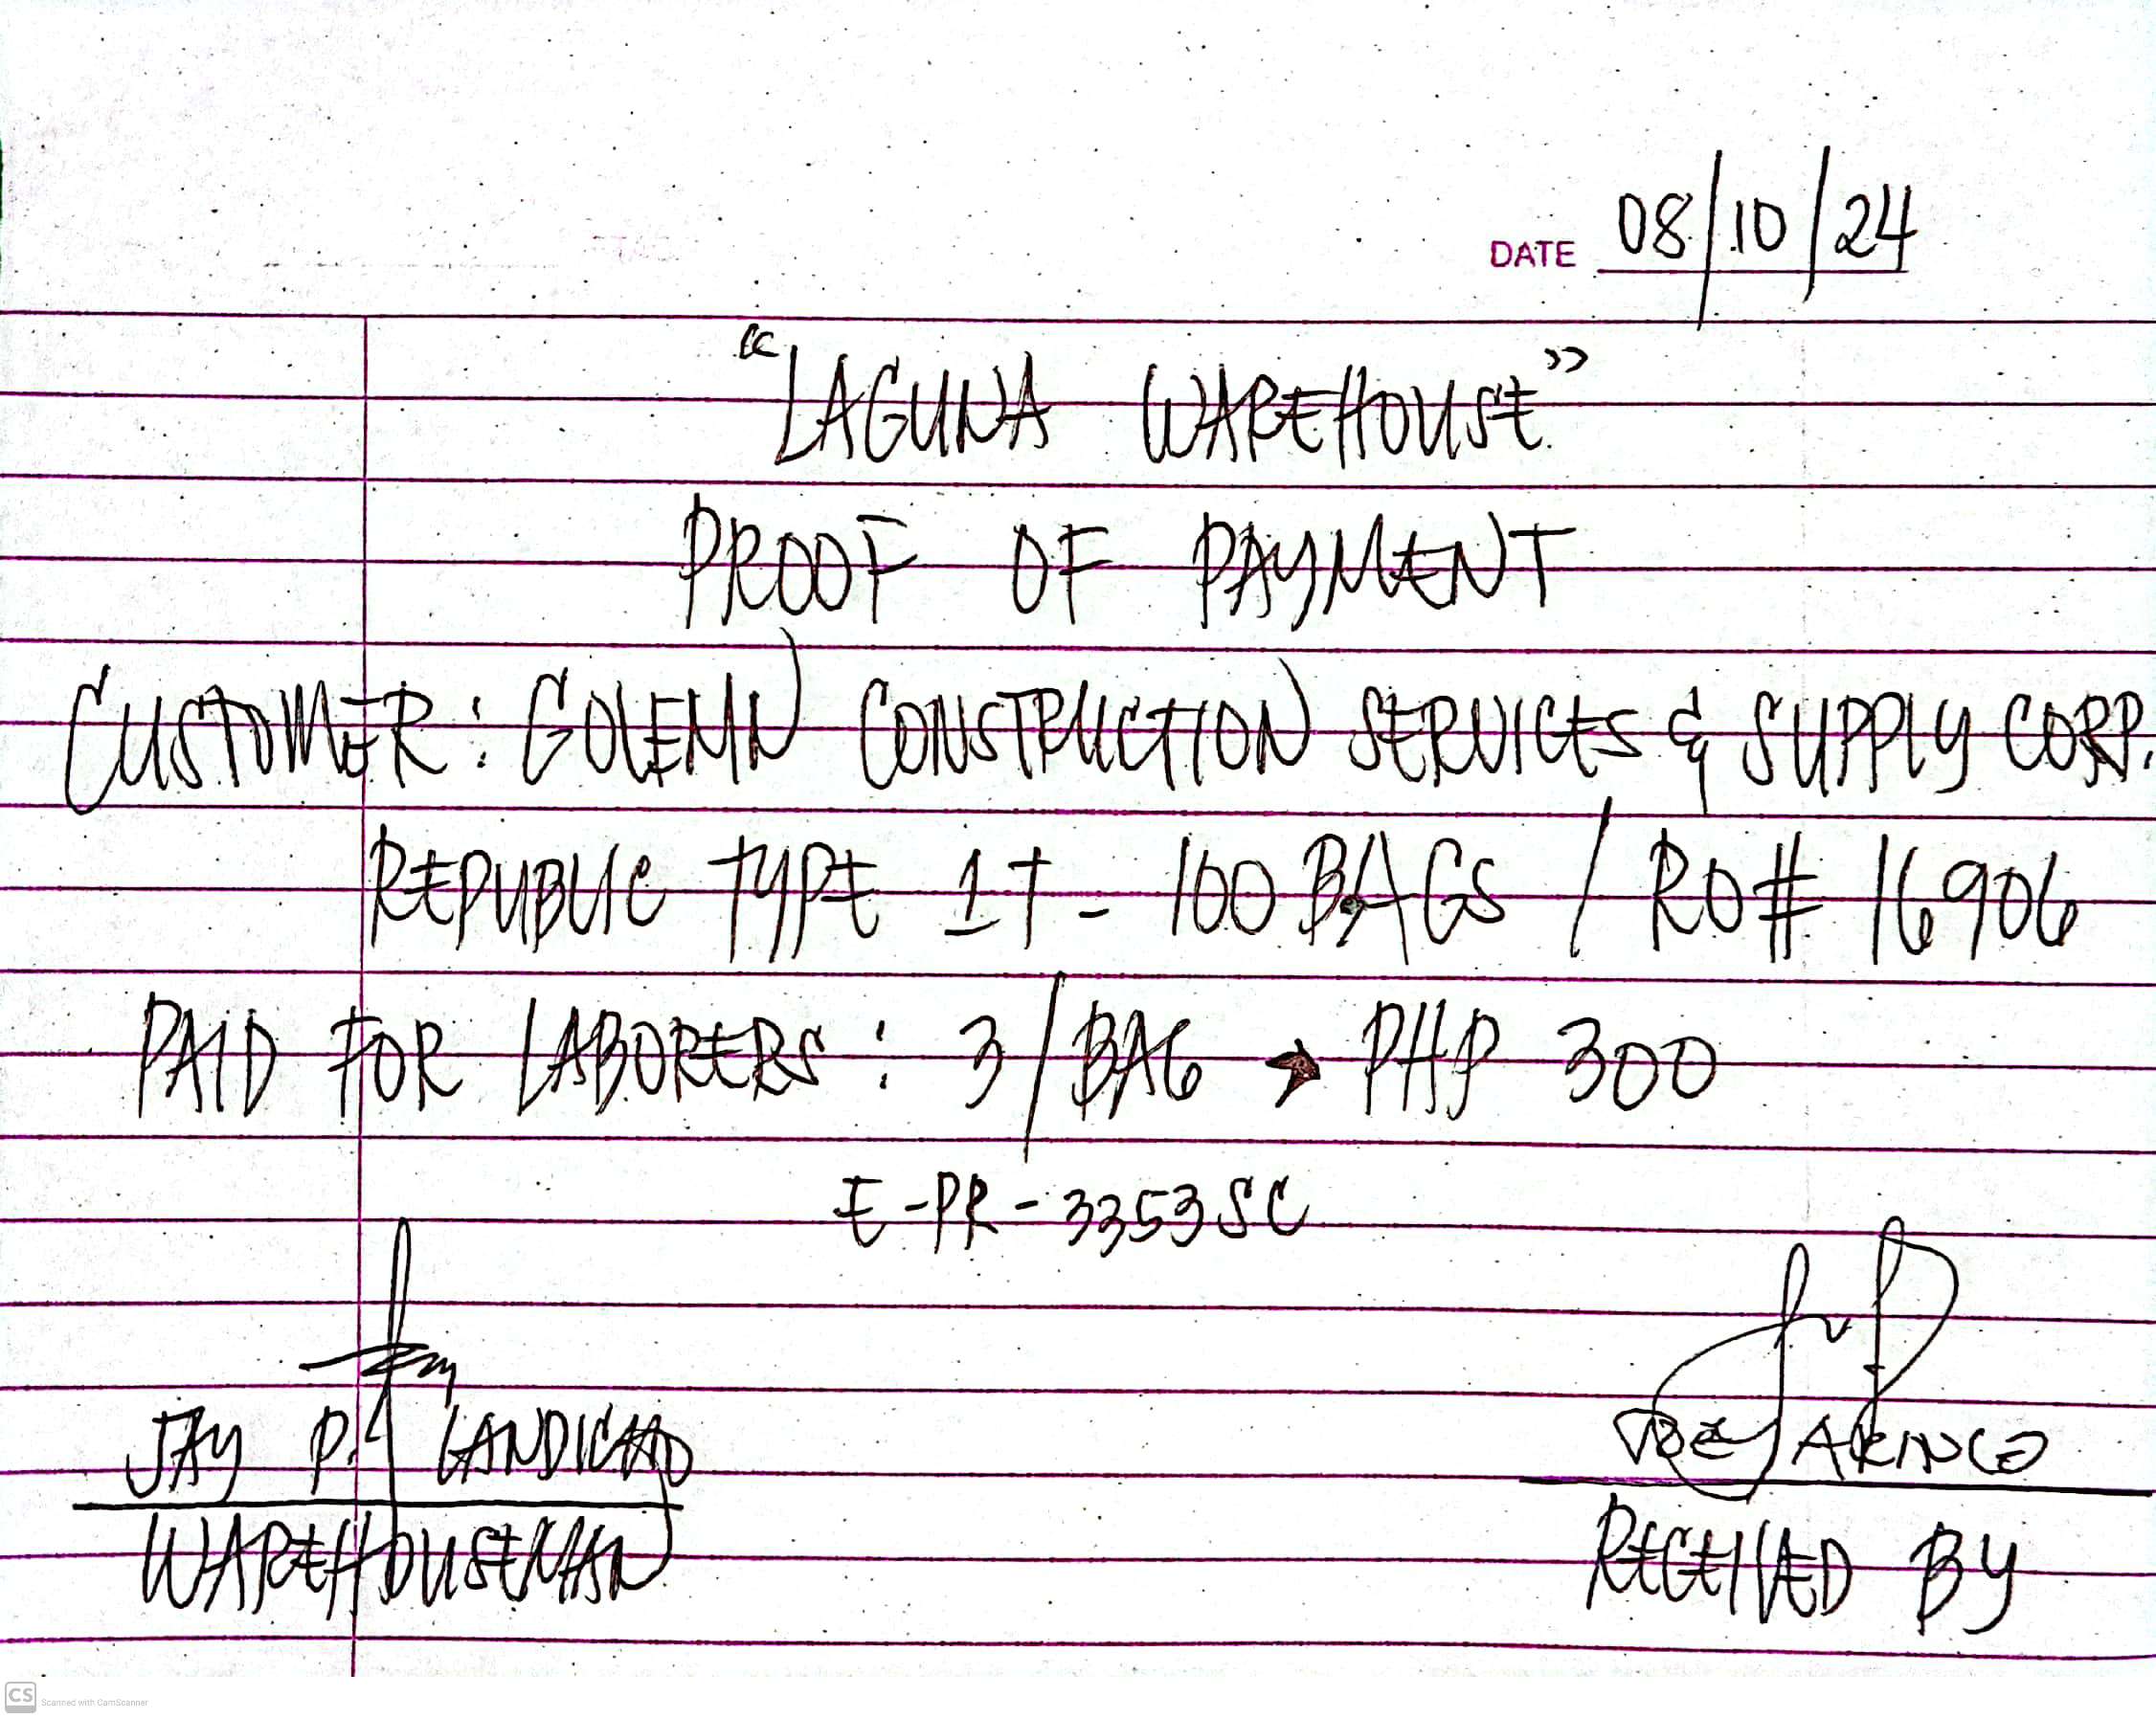 DATE 08/10/24
"LAGUNA WAREHOUSE"
PROOF OF PAYMENT
CUSTOMER: GOLEMN CONSTRUCTION SERVICES & SUPPLY CORP.
REPUBLIC TYPE 1T - 100 BAGS / RO# 16906
PAID FOR LABORERS: 3/BAG → PHP 300
E-PR-3353SC
JAY P. LANDICHO
WAREHOUSEMAN
ARINGO
RECEIVED BY
CS Scanned with CamScanner